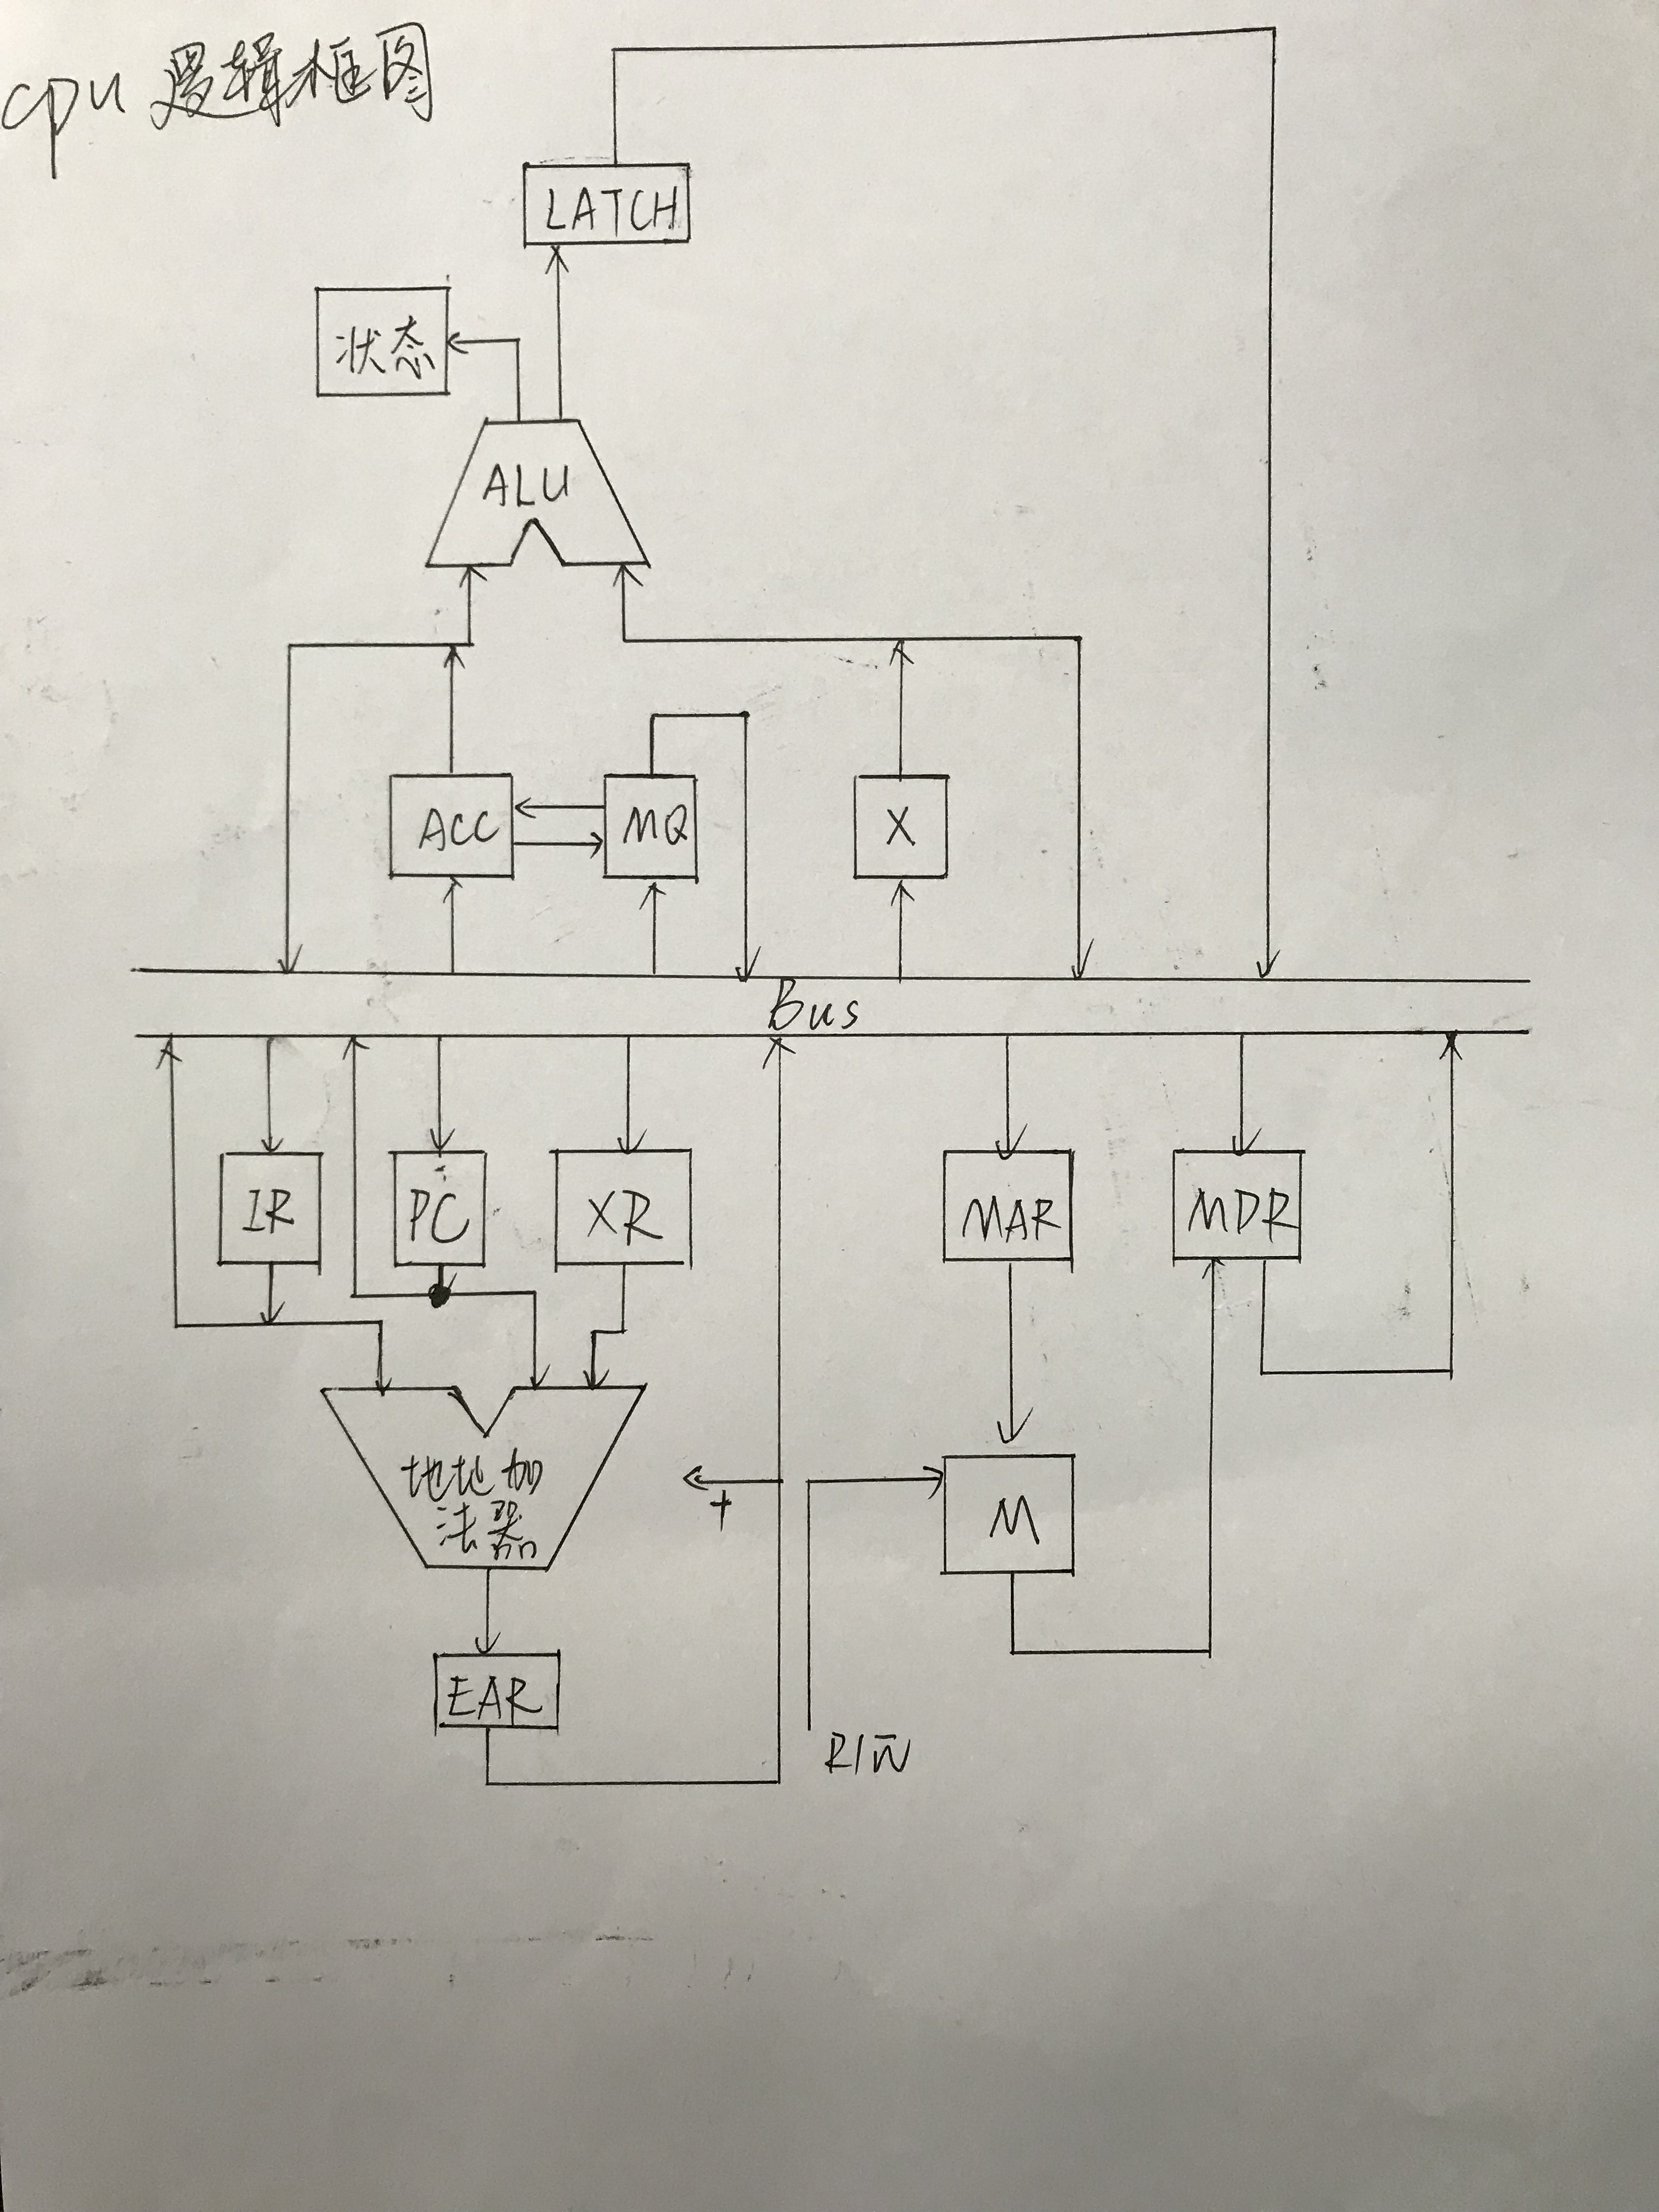 cpu 逻辑框图
LATCH
状态
ALU
ACC
MQ
X
Bus
IR
PC
XR
MAR
MDR
地址加
法器
+
M
EAR
R/W̅